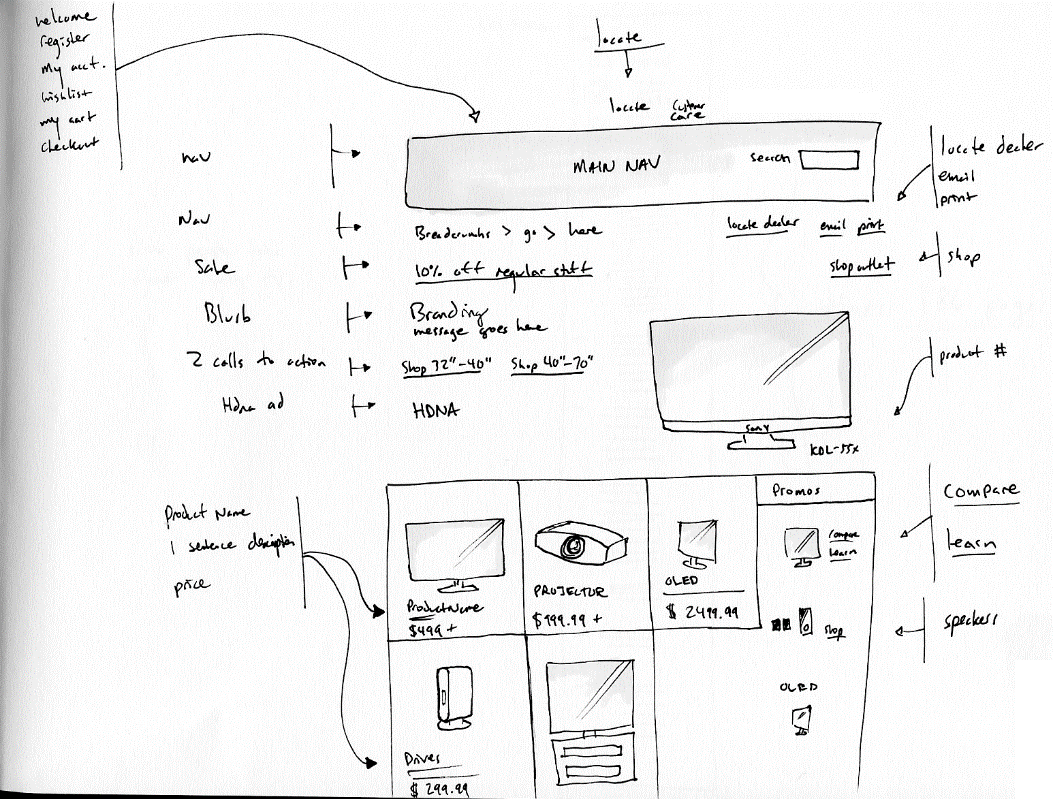 welcome
register
my acct.
wishlist
my cart
checkout
locate
locate
customer care
nav
MAIN NAV
search
locate dealer
email
print
Nav
Breadcrumbs > go > here
locate dealer
email
print
Sale
10% off regular stuff
shop outlet
shop
Blurb
Branding
message goes here
2 calls to action
Shop 32"-40"
Shop 40"-70"
product #
Hdna ad
HDNA
SONY
KDL-55x
Product Name
1 sentence description
price
Promos
compare
learn
Compare
Learn
Product Name
$499 +
PROJECTOR
$999.99 +
OLED
$ 2499.99
shop
speakers
OLED
Drives
$ 299.99